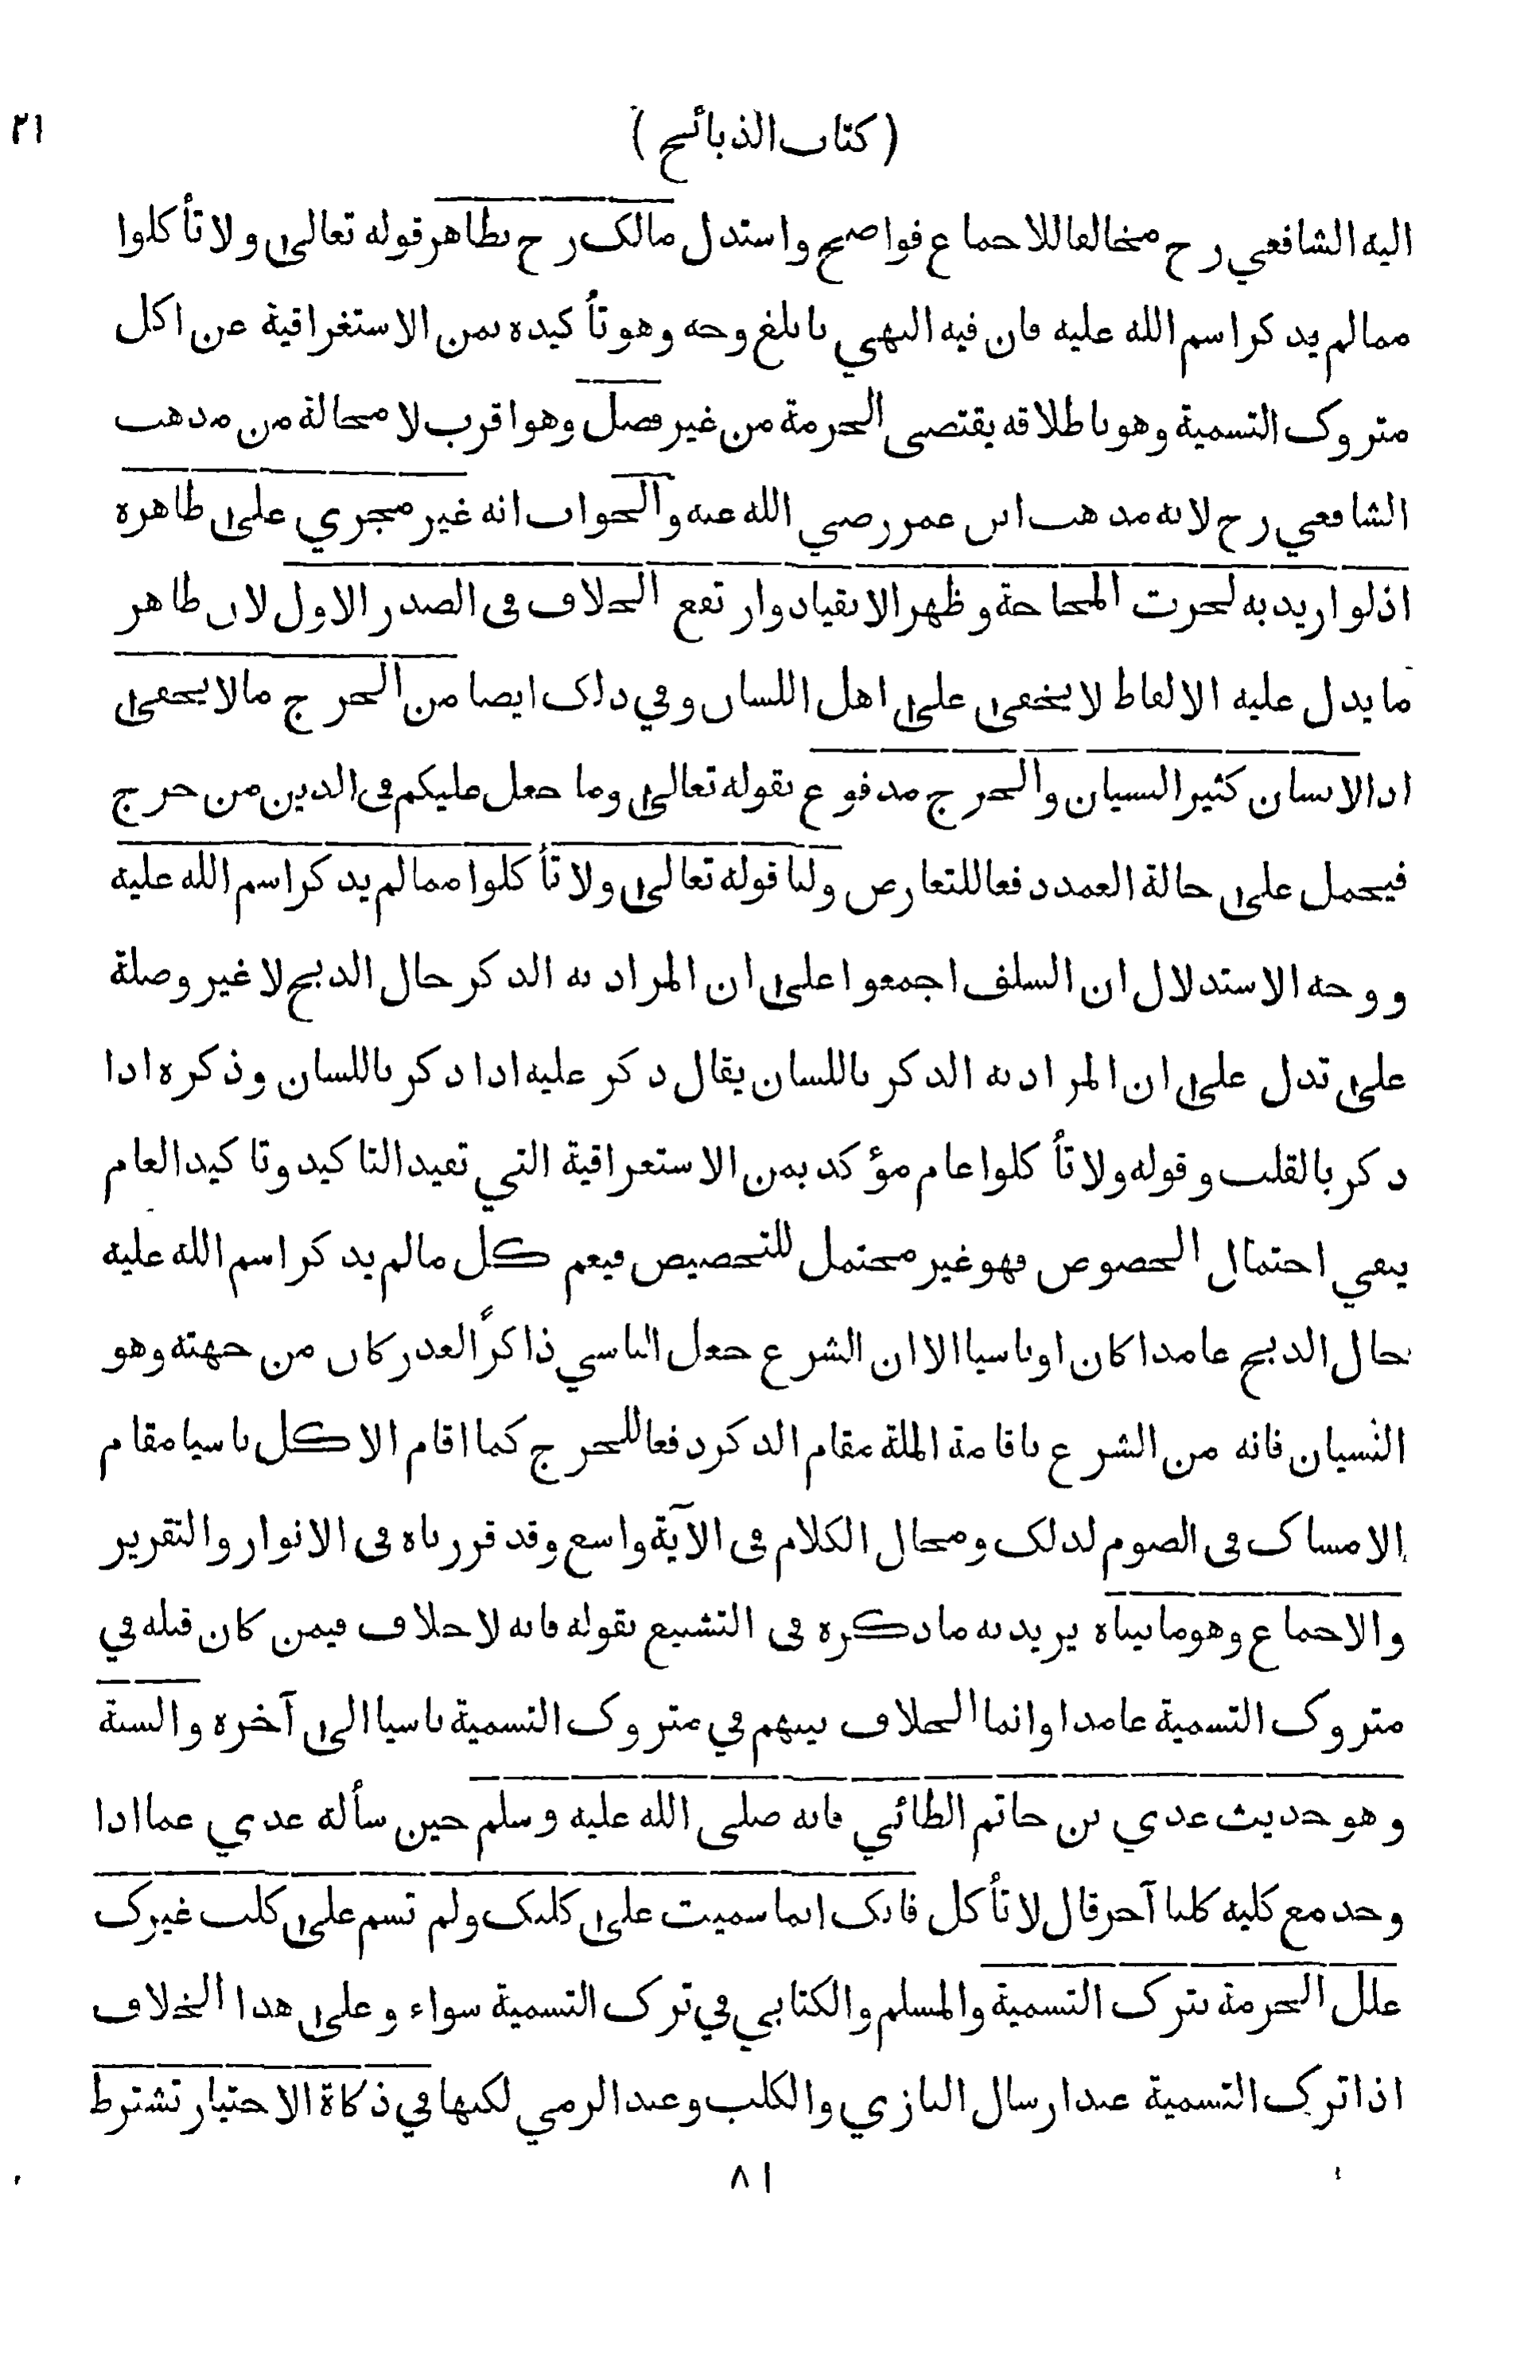 (كتاب الذبائح)
٢١
اليه الشافعي رح مخالفا للاجماع فواضح واستدل مالك رح بظاهر قوله تعالى ولا تأكلوا
مما لم يذكر اسم الله عليه فان فيه النهي بابلغ وجه وهو تأكيده بمن الاستغراقية عن اكل
متروك التسمية وهو باطلاقه يقتضى الحرمة من غير فصل وهو اقرب لا محالة من مذهب
الشافعي رح لانه مذهب ابن عمر رضي الله عنه والجواب انه غير مجري على ظاهره
اذ لو اريد به لجرت المحاجة وظهر الانقياد وارتفع الخلاف فى الصدر الاول لان ظاهر
ما يدل عليه الالفاظ لا يخفى على اهل اللسان وفي ذلك ايضا من الحرج ما لا يخفى
اذ الانسان كثير النسيان والحرج مدفوع بقوله تعالى وما جعل عليكم فى الدين من حرج
فيحمل على حالة العمد دفعا للتعارض ولنا قوله تعالى ولا تأكلوا مما لم يذكر اسم الله عليه
ووجه الاستدلال ان السلف اجمعوا على ان المراد به الذكر حال الذبح لا غير وصلة
على تدل على ان المراد به الذكر باللسان يقال ذكر عليه اذا ذكر باللسان وذكره اذا
ذكر بالقلب وقوله ولا تأكلوا عام مؤكد بمن الاستغراقية التي تفيد التاكيد وتاكيد العام
ينفي احتمال الخصوص فهو غير محتمل للتخصيص فيعم كل ما لم يذكر اسم الله عليه
حال الذبح عامدا كان او ناسيا الا ان الشرع جعل الناسي ذاكرًا لعذر كان من جهته وهو
النسيان فانه من الشرع باقامة الملة مقام الذكر دفعا للحرج كما اقام الاكل ناسيا مقام
الامساك فى الصوم لذلك ومجال الكلام فى الآية واسع وقد قررناه فى الانوار والتقرير
والاجماع وهو ما بيناه يريد به ما ذكره فى التشنيع بقوله فانه لا خلاف فيمن كان قبله في
متروك التسمية عامدا وانما الخلاف بينهم في متروك التسمية ناسيا الى آخره والسنة
وهو حديث عدي بن حاتم الطائي فانه صلى الله عليه وسلم حين سأله عدي عما اذا
وجد مع كلبه كلبا آخر قال لا تأكل فانك انما سميت على كلبك ولم تسم على كلب غيرك
علل الحرمة بترك التسمية والمسلم والكتابي في ترك التسمية سواء وعلى هذا الخلاف
اذا ترك التسمية عند ارسال البازي والكلب وعند الرمي لكنها في ذكاة الاختيار تشترط
٨١